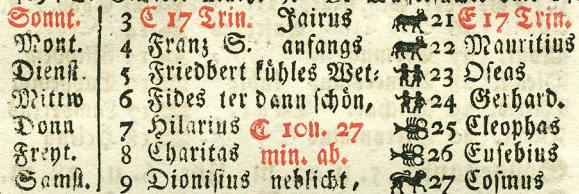 Sonnt. 3 C 17 Trin. Jairus 21 E 17 Trin.
Mont. 4 Franz S. anfangs 22 Mauritius
Dienst. 5 Friedbert kühles Wet- 23 Oseas
Mittw 6 Fides ter dann schön, 24 Gerhard.
Donn 7 Hilarius C 10 u. 27 25 Cleophas
Freyt. 8 Charitas min. ab. 26 Eusebius
Samst. 9 Dionisius neblicht, 27 Cosmus